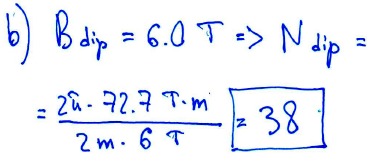 b) B dip = 6.0 T => N dip =
= 2π · 72.7 T·m / 2 m · 6 T = 38